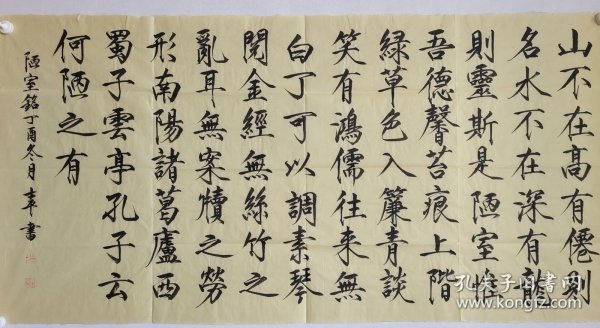 山不在高有僊則
名水不在深有龍
則靈斯是陋室惟
吾德馨苔痕上階
綠草色入簾青談
笑有鴻儒往来無
白丁可以調素琴
閱金經無絲竹之
亂耳無案牘之勞
形南陽諸葛廬西
蜀子雲亭孔子云
何陋之有
陋室銘丁酉冬月書
孔夫子旧书网
www.kongfz.com